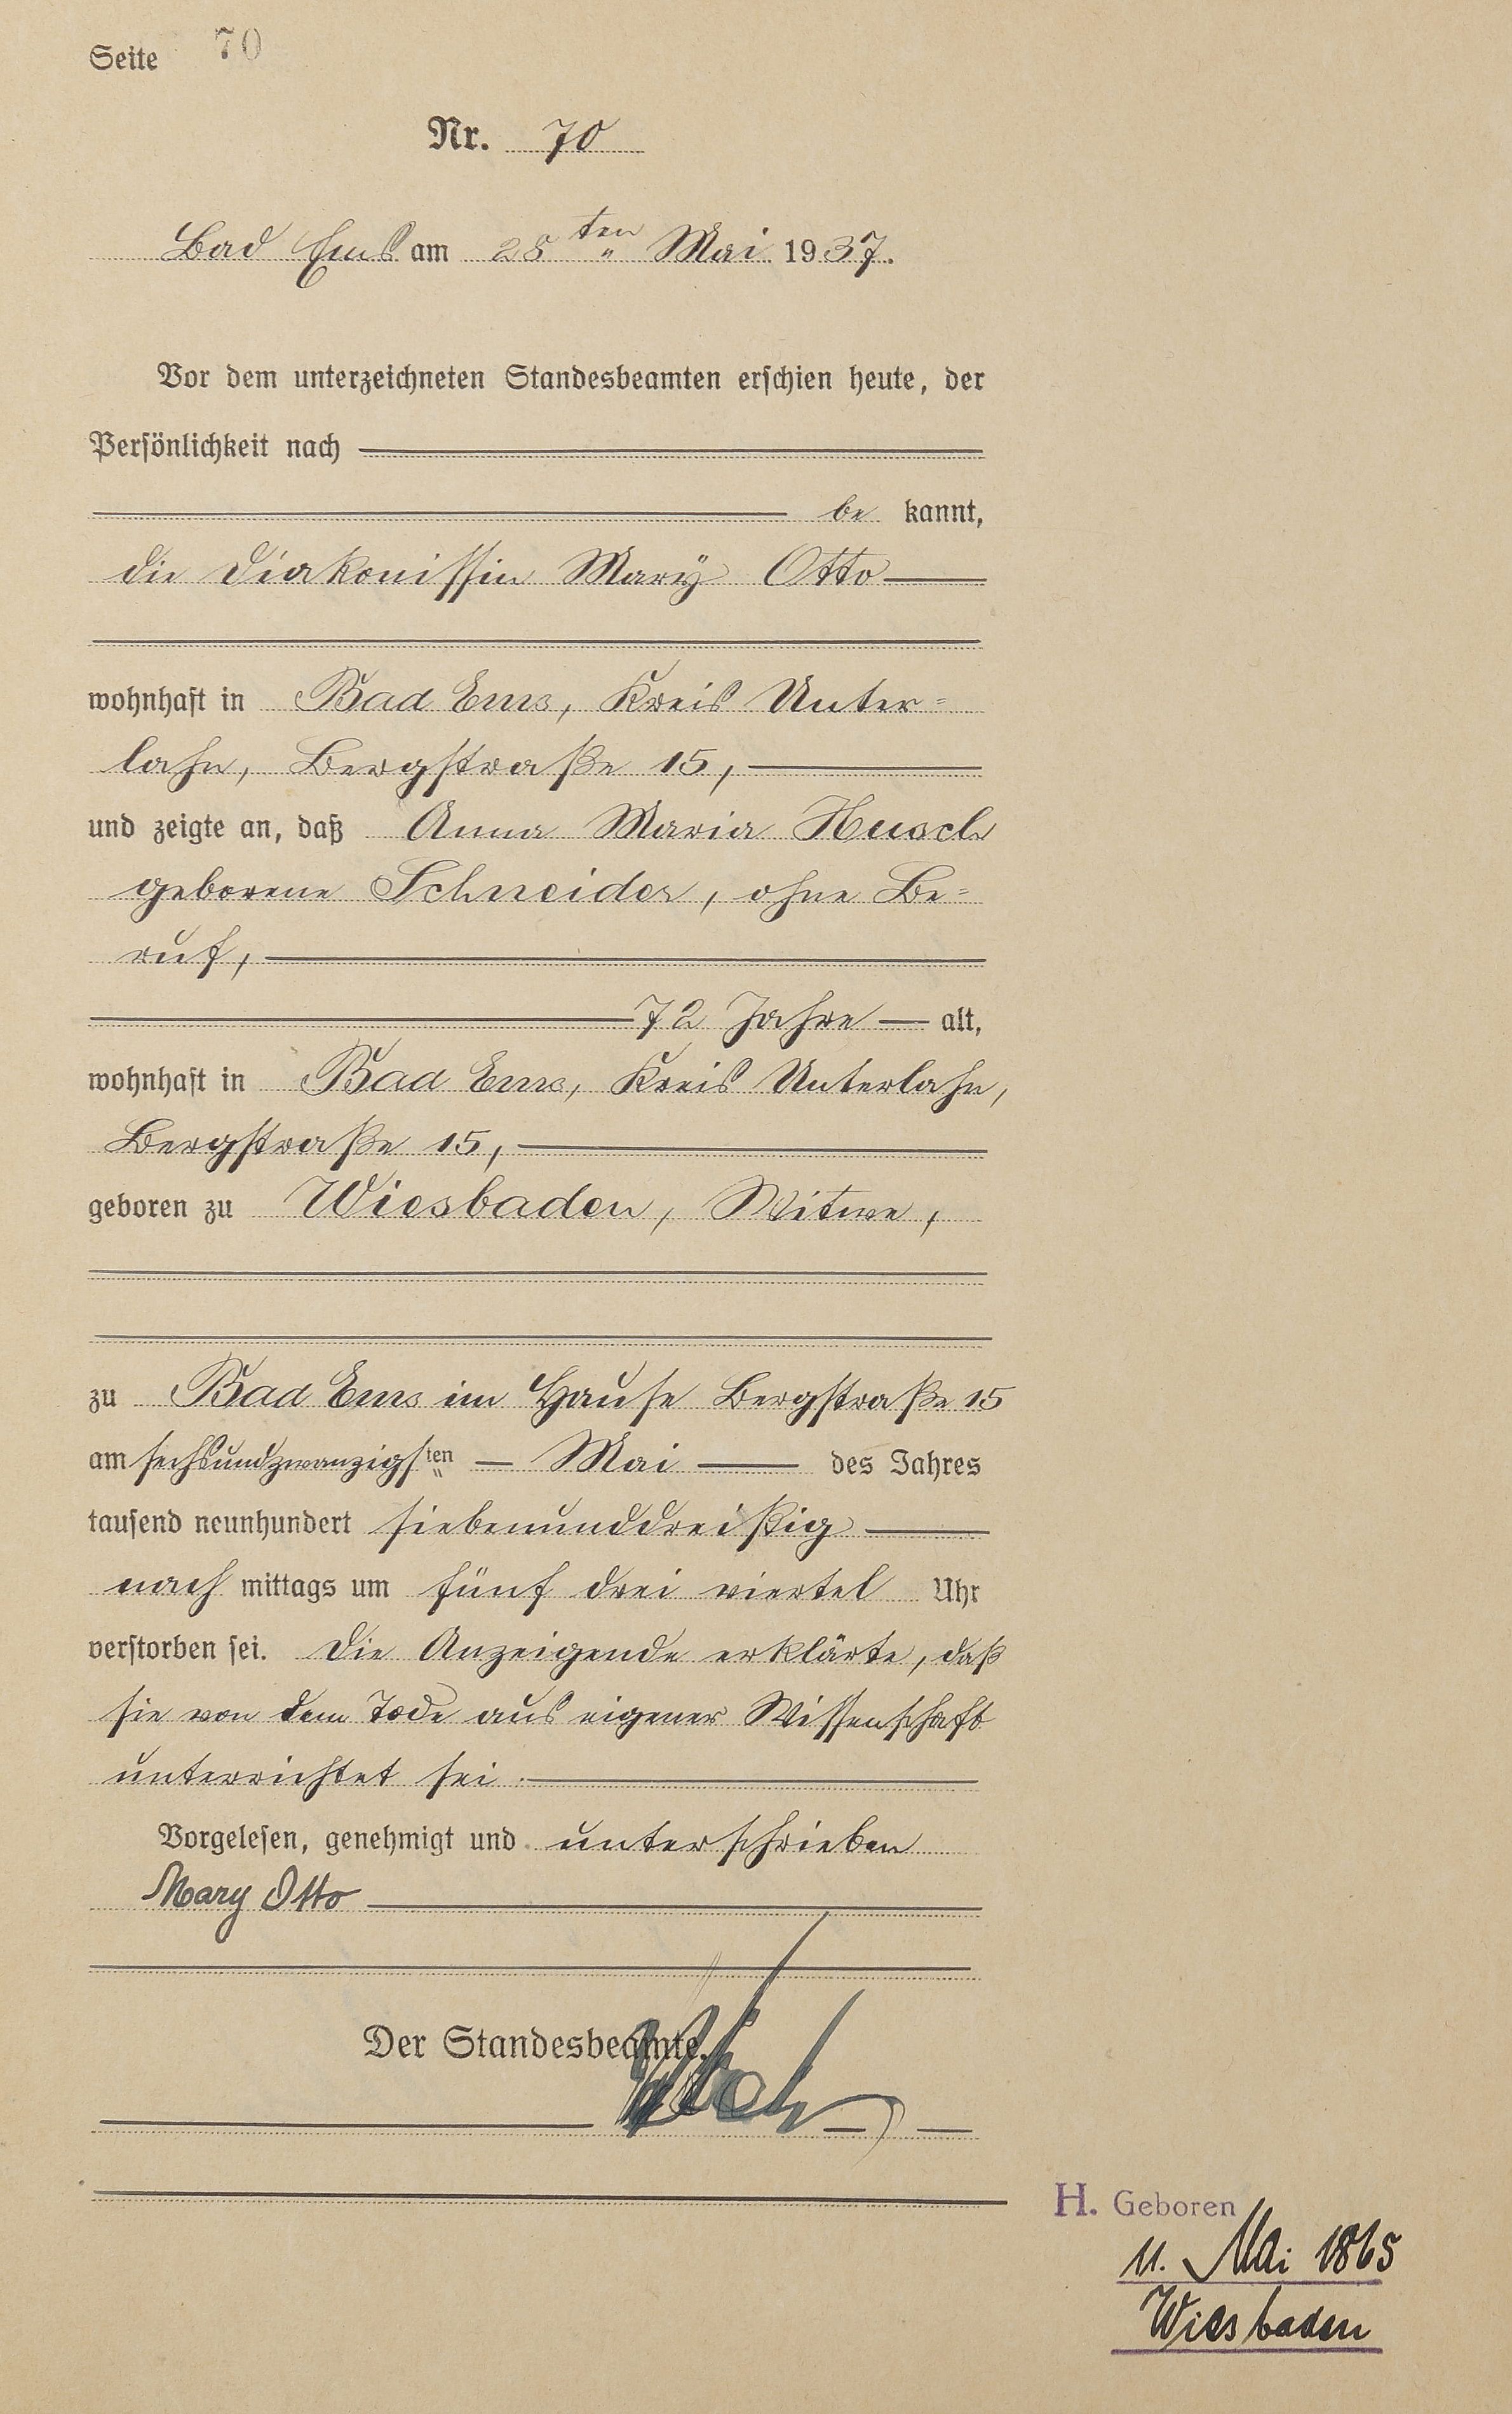 Seite 70
Nr. 70
Bad Ems am 28ten Mai 1937.
Vor dem unterzeichneten Standesbeamten erschien heute, der
Persönlichkeit nach
be kannt,
die Diakonissin Mary Otto
wohnhaft in Bad Ems, Kreis Unter=
lahn, Bergstraße 15,
und zeigte an, daß Anna Maria Husch
geborene Schneider, ohne Be=
ruf,
72 Jahre alt,
wohnhaft in Bad Ems, Kreis Unterlahn,
Bergstraße 15,
geboren zu Wiesbaden, Witwe,
zu Bad Ems im Hause Bergstraße 15
am sechsundzwanzigsten Mai des Jahres
tausend neunhundert siebenunddreißig
nach mittags um fünf drei viertel Uhr
verstorben sei. Die Anzeigende erklärte, daß
sie von dem Tode aus eigener Wissenschaft
unterrichtet sei.
Vorgelesen, genehmigt und unterschrieben
Mary Otto
Der Standesbeamte.
H. Geboren
11. Mai 1865
Wiesbaden